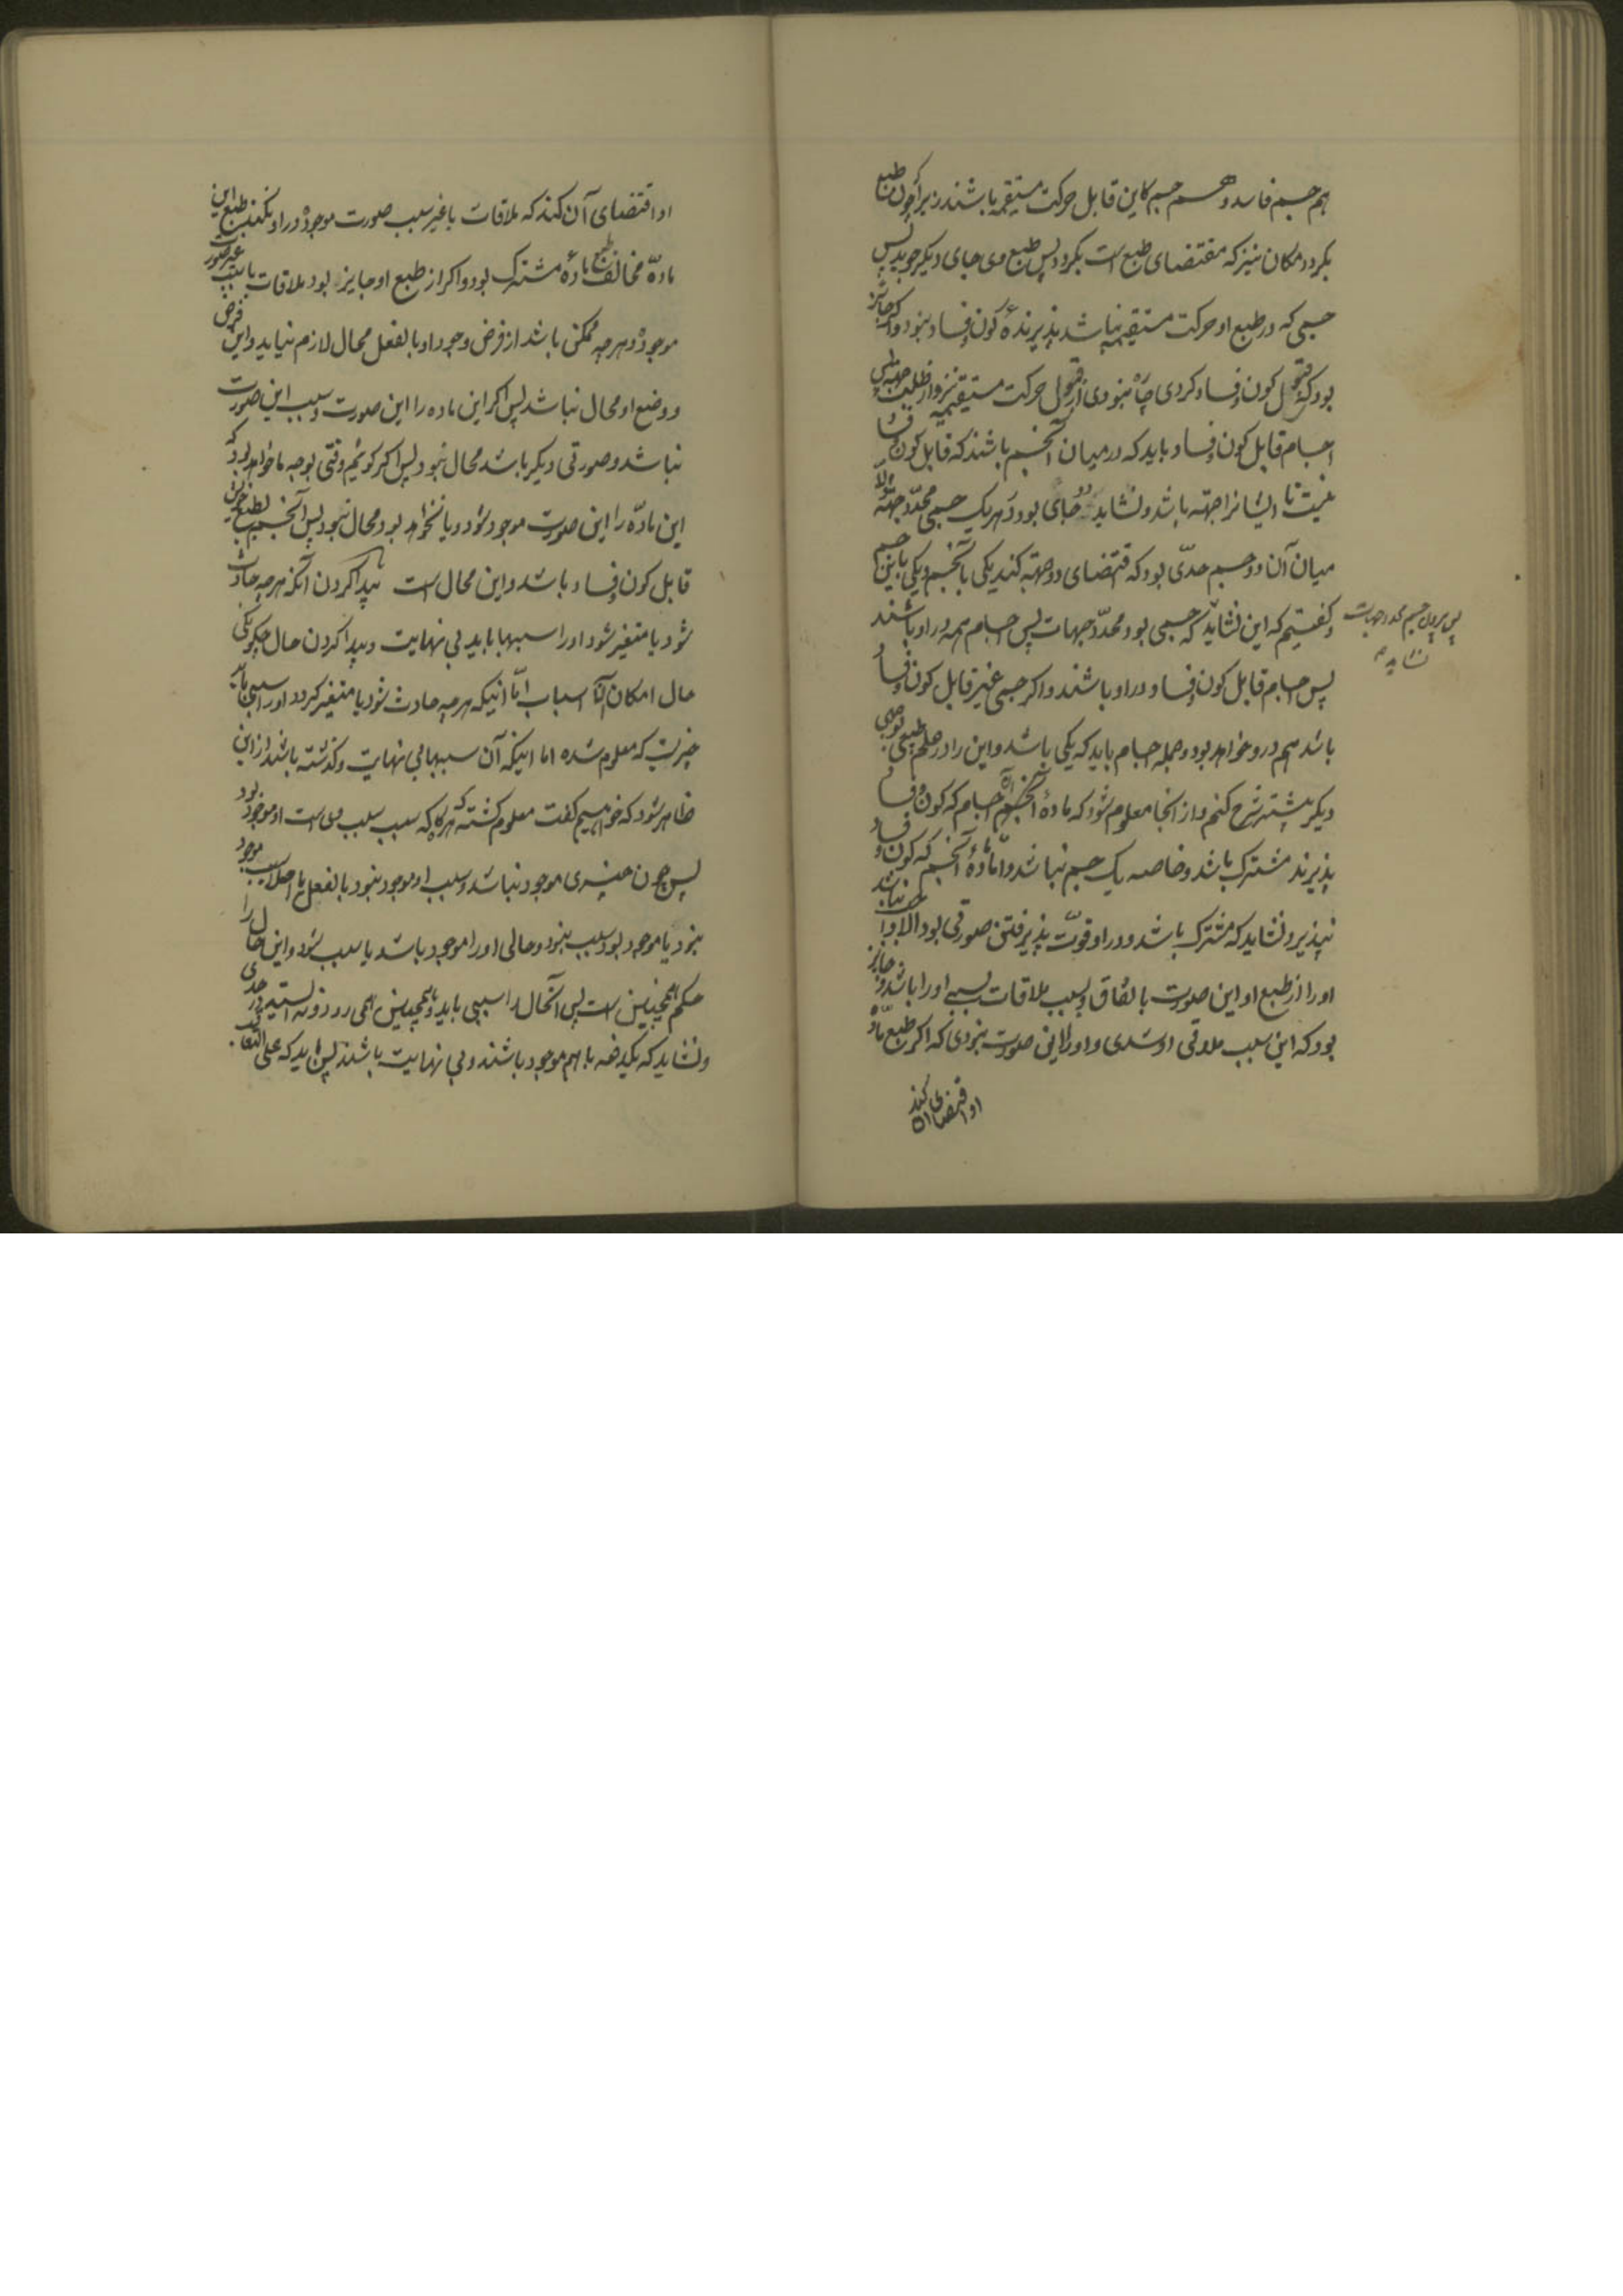 هم جسم فاسد و هم جسم کاین قابل حرکت مستقیمه باشند زیرا که چون طبع
بکردد مکان نیز که مقتضای طبع است بکردد پس طبع وی جای دیکر جوید پس
جسمی که در طبع او حرکت مستقیمه نباشد پذیرندهٔ کون و فساد نبود و اکر جائز
بودی که قبول کون و فساد کردی چاه نبودی از قبول حرکت مستقیمه نیز و از طلب جهه پس
اجسام قابل کون و فساد باید که در میان آنجسم باشند که قابل کون و فساد
نیست تا ایشانرا جهته باشد و نشاید دو جای بود و هر یک جسمی محدد جهته والا
میان آن دو جسم حدّی بود که اقتضای دو جهته کند یکی بآنجسم و یکی باین جسم
و کفتیم که این نشاید که جسمی بود محدّد جهات پس اجسام همه در او باشند
پس بیرون جسم محدد جهات
نشاید
پس اجسام قابل کون و فساد در او باشند و اکر جسمی غیر قابل کون و فساد
باشد هم درو خواهد بود و جمله اجسام باید که یکی باشد و این را در علم طبیعی بوجهی
دیکر پیشتر شرح کنم و از انجا معلوم شود که مادهٔ آن اجسام که کون و فساد
پذیرند مشترک باشد و خاصه یک جسم نباشد و امّا مادهٔ آنجسم که کون و فساد
نپذیرد نشاید که مشترک باشد و در او قوّت پذیرفتن صورتی بود الا و آن نباشد
اورا از طبع او این صورت باتفاق و بسبب ملاقات سببی اورا باشد و جایز
بود که این سبب ملاقی او شدی و اورا این صورت نبودی که اکر طبع مادّه
او اقتضای آن کند
او اقتضای آن کند که ملاقات با غیر سبب صورت موجوده در او نکند طبع این
مادّه مخالف طبع مادهٔ مشترک بود و اکر از طبع او جایز بود ملاقات با سبب غیر صورت
موجوده و هر چه ممکن باشد از فرض وجود او بالفعل محال لازم نیاید و این فرض
و وضع او محال نباشد پس اکر این ماده را این صورت و سبب این صورت
نباشد و صورتی دیکر باشد محال نبود پس اکر کوئیم وقتی بوجه ما خواهد بود که
این مادّه را این صورت موجود شود و یا نخواهد بود محال نبود پس آنجسم بطبع خویش
قابل کون و فساد باشد و این محال است پیدا کردن آنکه هر چه حادث
شود یا متغیر شود اورا سببها باید بی نهایت و پیدا کردن حال چکونکی
حال امکان آن اسباب امّا اینکه هر چه حادث شود یا متغیر کردد اورا سببی باید
چیزیست که معلوم شده اما اینکه آن سببها بی نهایت و کذشته باشد از این
ظاهر شود که خواهیم کفت معلوم کشته که هر کاه که سبب سبب وی است او موجود بود
پس چون چیزی موجود نباشد و سبب او موجود نبود بالفعل یا اصلا سبب موجود
نبود یا موجود بود سبب نبود و حالی اورا موجود باشد یا سبب شود و این حال را
حکم همچنین است پس آنحال را سببی باید و همچنین همی رود و نه ایستد در حدی
و نشاید که یکدفعه با هم موجود باشند و بی نهایت باشند پس باید که علی التعاقب